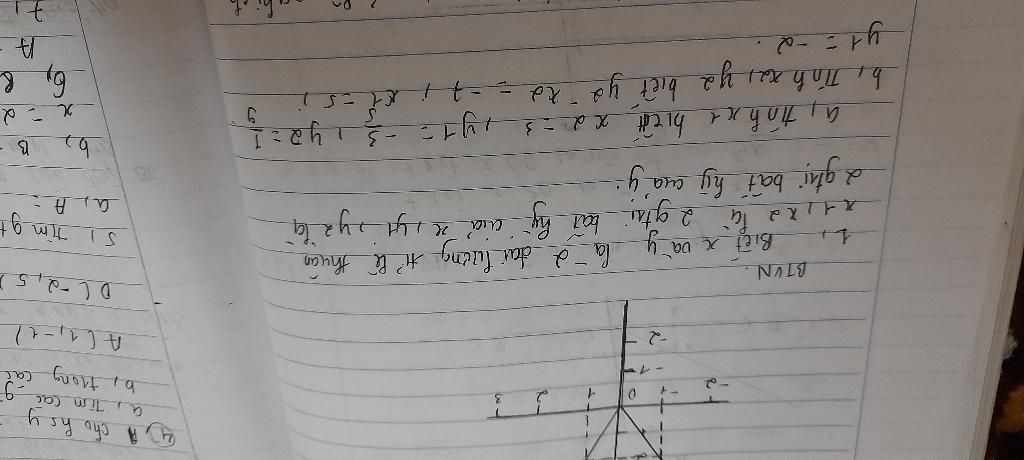 -2 -1 0 1 2 3
-1
-2
BTVN.
1, Biết x và y là 2 đại lượng tỉ lệ thuận
x1, x2 là 2 gtrị bất kỳ của x, y1, y2 là
2 gtrị bất kỳ của y
a, tính x1 biết x2 = 3, y1 = -3/5, y2 = 1/9
b, Tính x2, y2 biết y2 - x2 = -7, x1 = 5,
y1 = -2.
4, Cho hs y
a, Tìm các g
b, trong các
A(1, -1)
D(-2, 5)
5, Tìm gt
a, A =
b, B =
x = 2
6,
A
7,